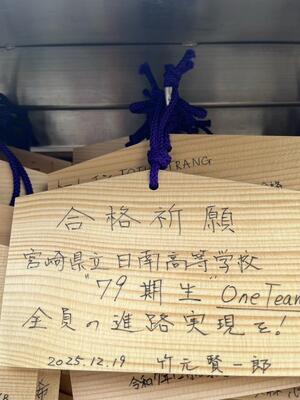 合格祈願
宮崎県立日南高等学校
"79期生" One Team
全員の進路実現を!
2025.12.19 竹元賢一郎